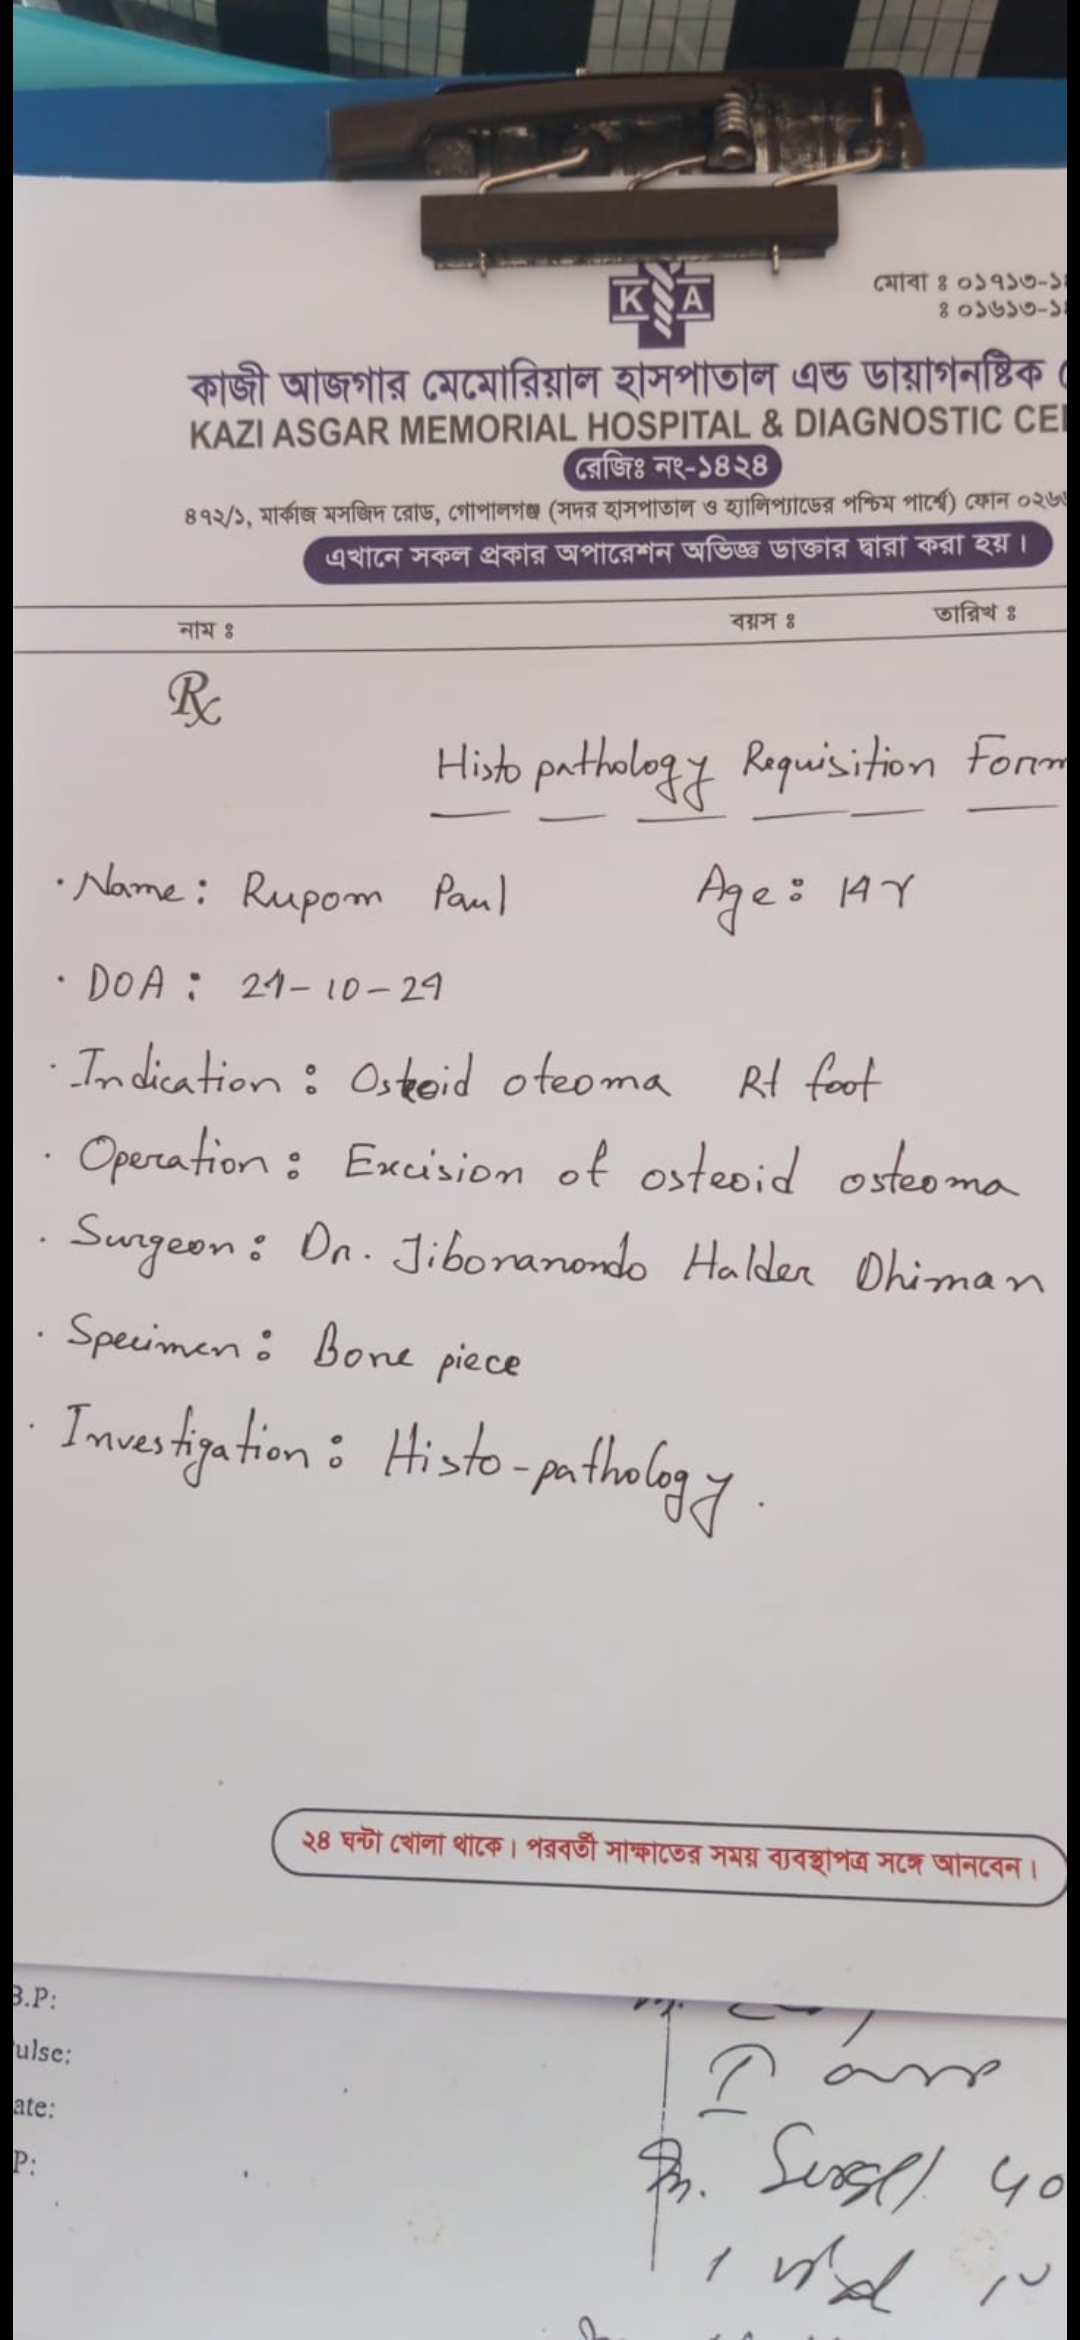 K A
মোবা ঃ ০১৭১৩-১
ঃ ০১৬১৩-১
কাজী আজগার মেমোরিয়াল হাসপাতাল এন্ড ডায়াগনষ্টিক
KAZI ASGAR MEMORIAL HOSPITAL & DIAGNOSTIC CE
রেজিঃ নং-১৪২৪
৪৭২/১, মার্কাজ মসজিদ রোড, গোপালগঞ্জ (সদর হাসপাতাল ও হ্যালিপ্যাডের পশ্চিম পার্শ্বে) ফোন ০২৬
এখানে সকল প্রকার অপারেশন অভিজ্ঞ ডাক্তার দ্বারা করা হয়।
নাম ঃ বয়স ঃ তারিখ ঃ
Rx
Histopathology Requisition Form
· Name: Rupom Paul Age: 14Y
· DOA: 24-10-24
· Indication: Osteoid oteoma Rt foot
· Operation: Excision of osteoid osteoma
· Surgeon: Dr. Jibonanondo Halder Dhiman
· Specimen: Bone piece
· Investigation: Histo-pathology.
২৪ ঘন্টা খোলা থাকে। পরবর্তী সাক্ষাতের সময় ব্যবস্থাপত্র সঙ্গে আনবেন।
B.P:
ulse:
ate:
P:
40